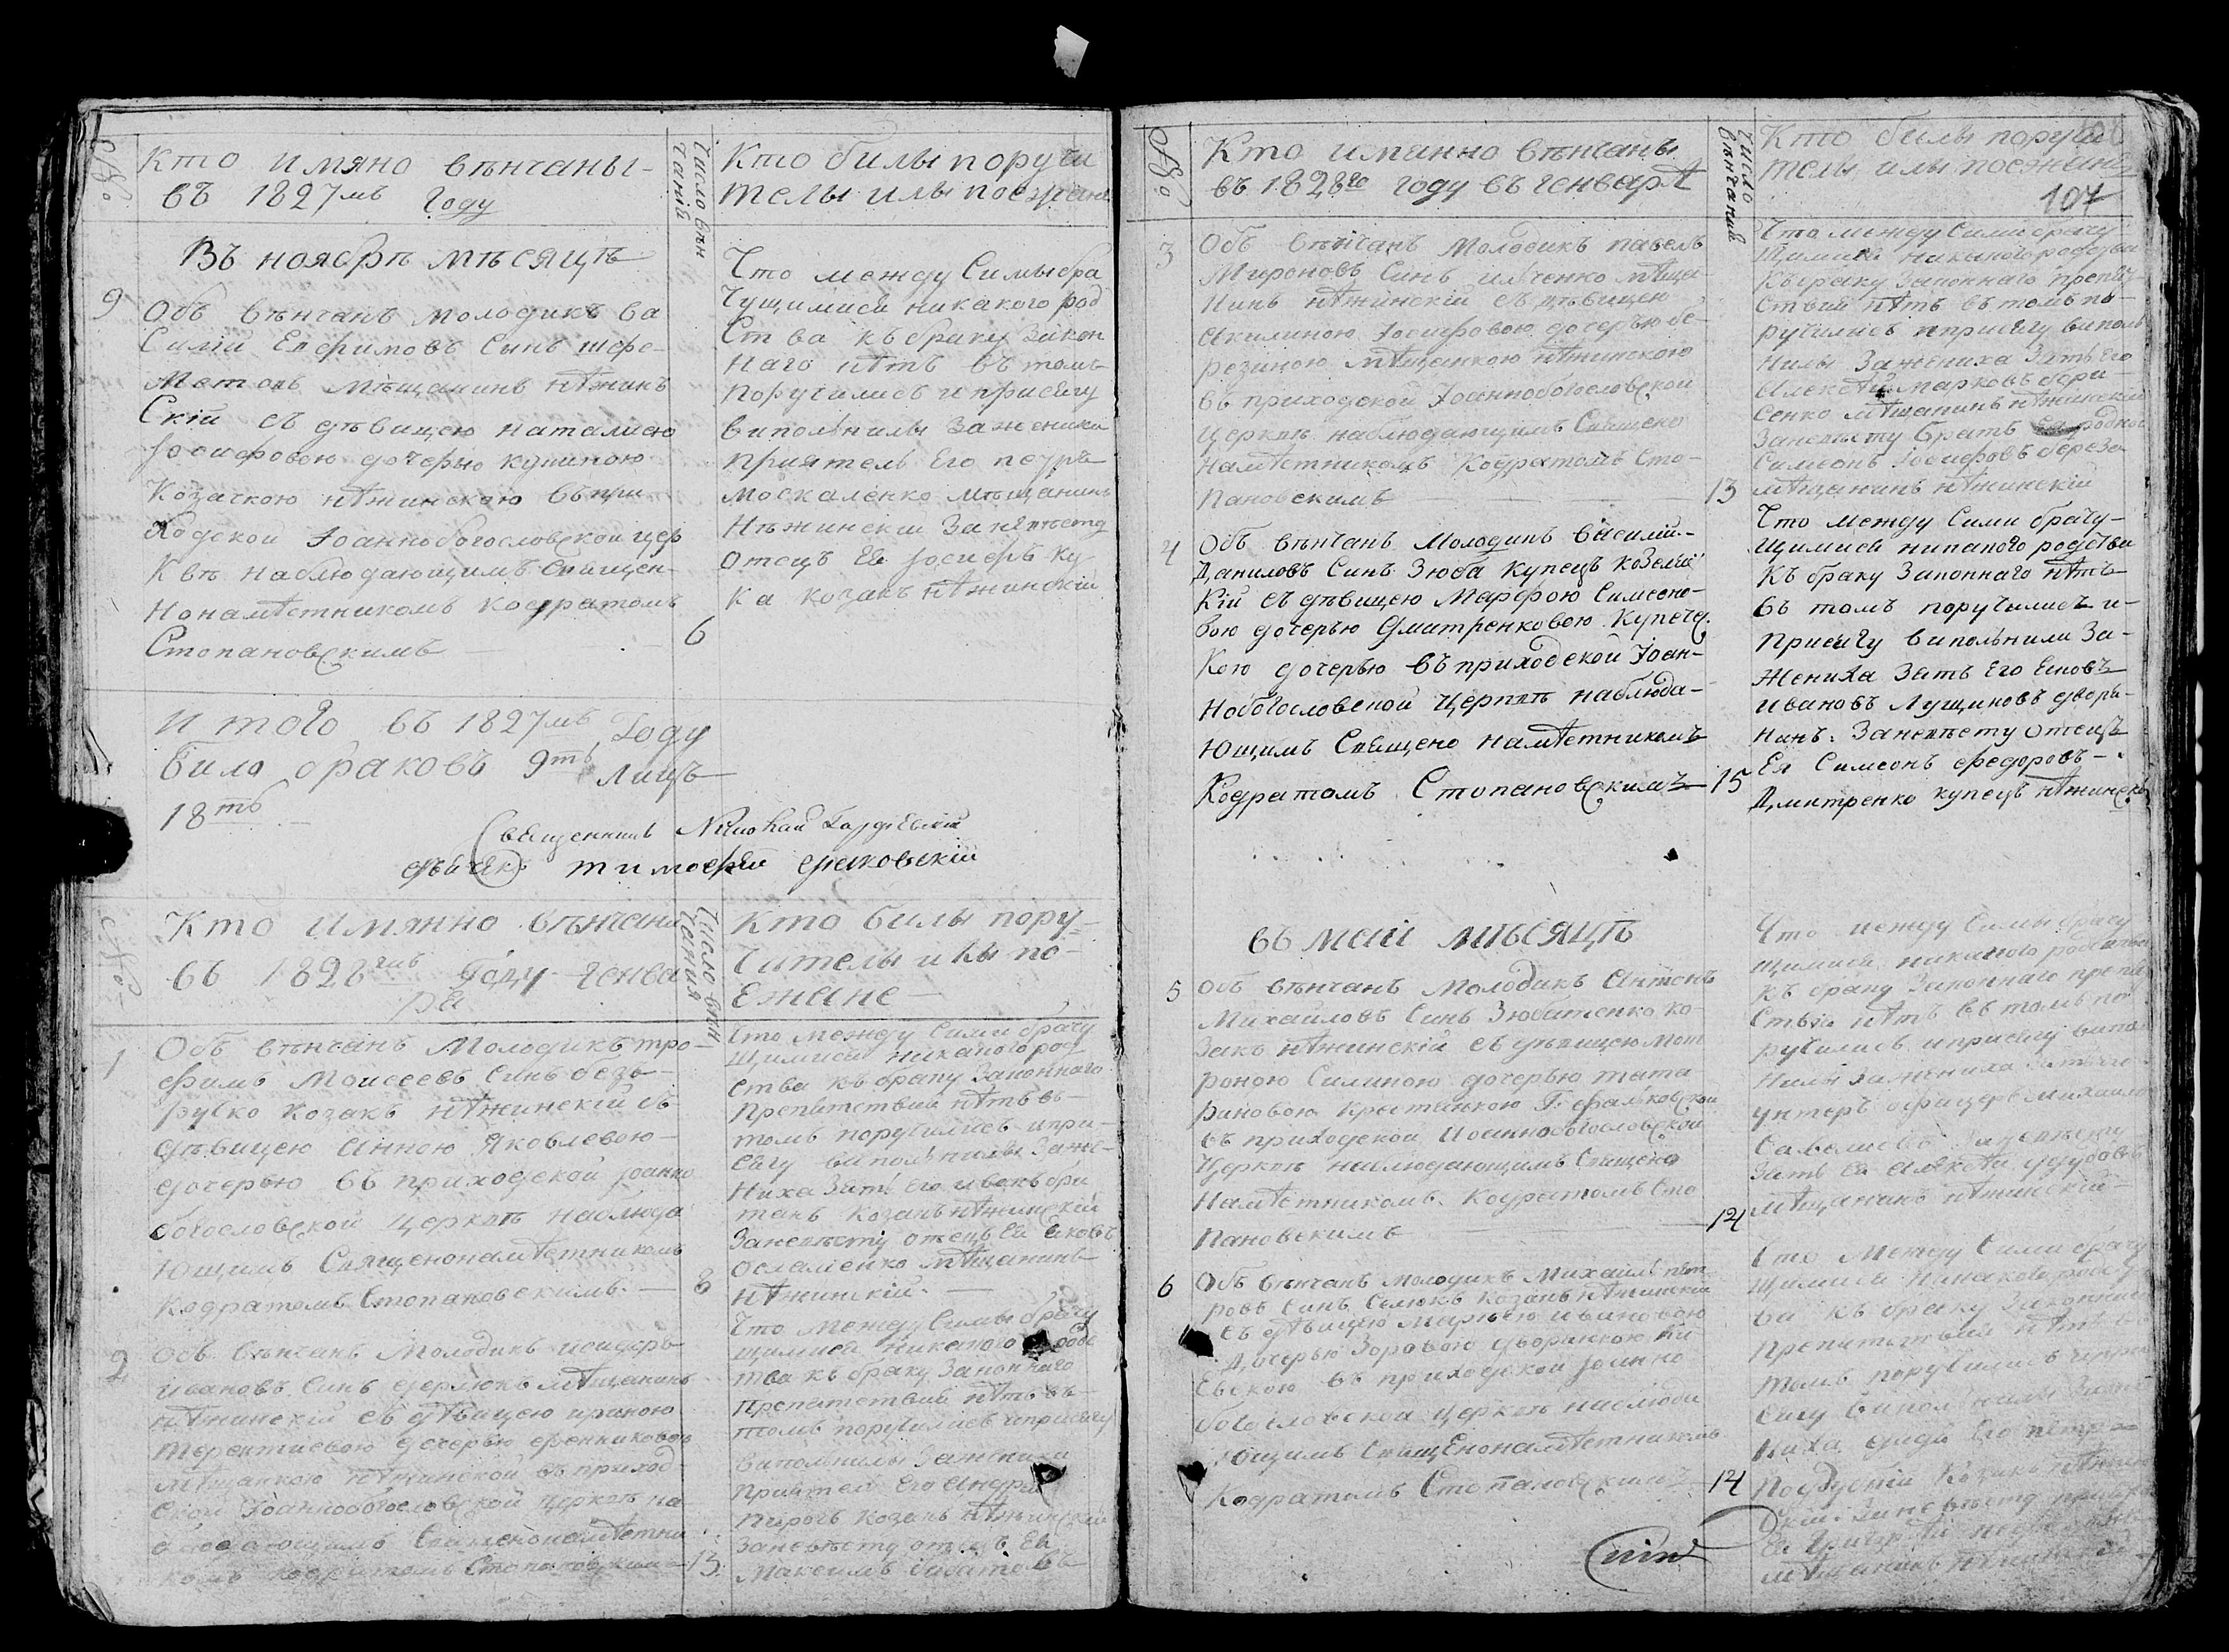 №
Кто имяно вѣнчаны
въ 1827мъ Году
Число вѣн
чаній
Кто были поручи
телы илы поезжане
Въ ноябрѣ мѣсяцѣ
9
Объ вѣнчанъ молодикъ ва
силій Ефимовъ сынъ шере-
метовъ мѣщанинъ нѣжин
скій съ дѣвицею наталиею
Іосифовою дочерью кукиною
козачкою нѣжинскою въ при
ходской Іоаннобогословской цер
квѣ наблюдающимъ священ-
нонамѣстникомъ кодратомъ
Стопановскимъ
6
Что между симы бра
чущимися никакого род
ства къ браку закон
наго нѣтъ въ томъ
поручились и присягу
виполнилы за жениха
приятель его петръ
москаленко мѣщанинъ
Нѣжинскій за невѣсту
отецъ ея Іосифъ ку-
ка козакъ нѣжинскій
Итого въ 1827мъ Году
било браковъ 9ть Лицъ
18ть
Священникъ Николай
дьячекъ тимофей
№
Кто имянно вѣнчани
въ 1828мъ Году генва
ря
Число вѣн
чания
Кто билы пору-
чителы илы по-
езжане
1
Объ вѣнчанъ Молодикъ тро-
фимъ Моисеевъ синъ безъ-
ручко козакъ нѣжинскій съ
дѣвицею Анною Яковлевою
дочерью въ приходской Іоанно
богословской церквѣ наблюда
ющимъ Священонамѣстникомъ
Кодратомъ Стопановскимъ.
8
Что между сими брачу
щимися никакого род
ства къ браку законнаго
препятствия нѣтъ въ
томъ поручились и при-
сягу виполнилы за же-
ниха зять его иванъ бри
танъ козакъ нѣжинскій
За невѣсту отецъ ея яковъ
мѣщанинъ
нѣжинскій.
2
Объ вѣнчанъ Молодикъ
Ивановъ синъ мѣщанинъ
нѣжинскій съ дѣвицею
Терентиевою дочерью
мѣщанкою нѣжинской въ приход
ской Іоаннобогословской церквѣ на
блюдающимъ Священонамѣстни
комъ кодратомъ Стопановским
13
Что между симы брачу
щимися никакого родс
тва къ браку законнаго
препятствия нѣтъ въ
томъ поручились и присягу
виполнилы за жениха
приятел его Андрей
пирогъ козакъ нѣжинскій
за невѣсту отецъ ея
Максимъ
№
Кто имянно вѣнчаны
въ 1828го году въ генварѣ
Число
вѣнчаний
Кто билы поручи
телы илы поезжане
107
3
Объ вѣнчанъ Молодикъ павелъ
Мироновъ синъ илченко мѣща-
нинъ нѣжинскій съ дѣвицею
Акилиною Іосифовою дочерью бе-
резиною мѣщанкою нѣжинскою
въ приходской Іоаннобогословской
церквѣ наблюдающимъ Священо
намѣстникомъ Кодратомъ Сто-
пановскимъ
13
Что между сими брачу
щимися никакого родства
къ браку законнаго препят-
ствия нѣтъ въ томъ по-
ручились и присягу випол
нилы за жениха зять его
Алексѣй Марковъ бори-
сенко мѣщанинъ нѣжинскій
за невѣсту братъ родной
Симеонъ Іосифовъ береза
мѣщанинъ нѣжинскій
4
Объ вѣнчанъ Молодикъ василий
Даниловъ Синъ Зюба купецъ козелец
кій съ дѣвицею Марфою Симеоно-
вою дочерью Дмитренковою купеческ
кою дочерью въ приходской Іоан-
нобогословской церквѣ наблюда-
ющимъ Священо намѣстникомъ
Кодратомъ Стопановскимъ
15
Что между сими брачу-
щимися никакого родства
къ браку законнаго нѣтъ
въ томъ поручились и-
присягу виполнили за-
жениха зять его Яковъ
ивановъ Лущиковъ дворя-
нинъ. За невѣсту отецъ
Ея Симеонъ федоровъ
Дмитренко купецъ нѣжинскій
въ маіи мѣсяцѣ
5
Объ вѣнчанъ Молодикъ Антонъ
Михайловъ синъ Зюбатенко ко-
закъ нѣжинскій съ дѣвицею мот
роною Симиною дочерью тата
риновою крестянкою
въ приходской Иоаннобогословской
церквѣ наблюдающимъ Священо
намѣстникомъ Кодратомъ Сто
пановскимъ
14
Что между симы брачу
щимися никакого родства
къ браку законнаго препят
ствія нѣтъ въ томъ по
ручились и присягу випол
нилы за жениха зять его
унтеръ офицеръ михаило
Савелиевъ за невѣсту
зять ея Алексѣй
мѣщанинъ нѣжинскій
6
Объ вѣнчанъ молодикъ Михаилъ пет
ровъ синъ козакъ нѣжинскій
съ дѣвицею Ивановою
дочерью дворянкою ки
евскою въ приходской Іоанно
богословской церквѣ наблюда
ющимъ СвящЕнонамѣстникомъ
Кодратомъ Стопановскимъ
14
Что между сими брачу
щимися никакого родст
ва къ браку законнаго
препятствия нѣтъ въ
томъ поручились и при
сягу виполнилы за же
ниха дядя его петръ
козакъ нѣжин
скій. за невѣсту
Ея Григорій
мѣщанинъ нѣжинскій